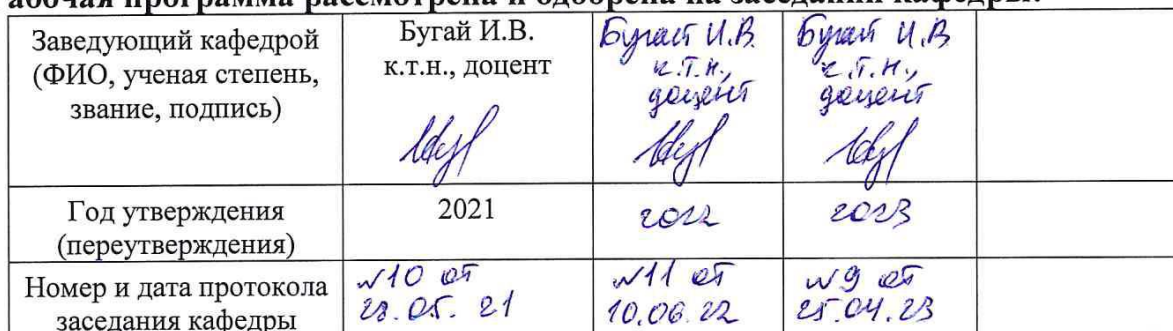 абочая программа рассмотрена и одобрена на заседании кафедры:
Заведующий кафедрой
(ФИО, ученая степень,
звание, подпись)
Бугай И.В.
к.т.н., доцент
Бугай И.В.
к.т.н.,
доцент
Бугай И.В
к.т.н.,
доцент
Год утверждения
(переутверждения)
2021
2022
2023
Номер и дата протокола
заседания кафедры
№10 от
28.05.21
№11 от
10.06.22
№9 от
25.04.23